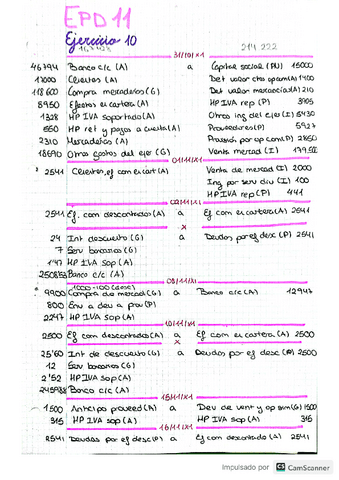 EPD 11
Ejercicio 10
214.222
31/10/X1
46794 Banco c/c (A) a Capital social (PN) 15000
17000 Clientes (A) Det valor cto op com (A) 1400
118600 Compra mercaderías (G) Det valor mercancía (A) 210
8950 Efectos en cartera (A) HP IVA rep (P) 3905
1328 HP IVA soportado (A) Otros ing del ejer (I) 5430
550 HP ret y pagos a cuenta (A) Proveedores (P) 5927
2310 Mercaderías (A) Provisión por op com (P) 2850
18690 Otros gastos del ejer (G) Venta mercad (I)
01/11/X1
2541 Clientes, ef com en cart (A) Venta de mercad (I) 2000
Ing por serv div (I) 100
HP IVA rep (P) 441
02/11/X1
2541 Ef. com descontados (A) a Ef com en cartera (A) 2541
x
24 Int descuento (G) a Deudas por ef desc (P) 2541
7 Serv bancarios (G)
1'47 HP IVA sop (A)
2508'53 Banco c/c (A)
08/11/X1
9900 Compra de mercad (G) a Banco c/c (A) 12947
800 Env a dev a prov (P)
2247 HP IVA sop (A)
10/11/X1
2500 Ef com descontados (A) a Ef com en cartera (A) 2500
x
25'60 Int de descuento (G) a Deudas por ef desc (P) 2500
12 Serv bancarios (G)
2'52 HP IVA sop (A)
2459'88 Banco c/c (A)
15/11/X1
1500 Anticipo proveed (A) a Dev de vent y op sim (G) 1500
315 HP IVA sop (A) HP IVA sop (A) 315
16/11/X1
2541 Deudas por ef desc (P) a Ef com descontados (A) 2541
Impulsado por CS CamScanner